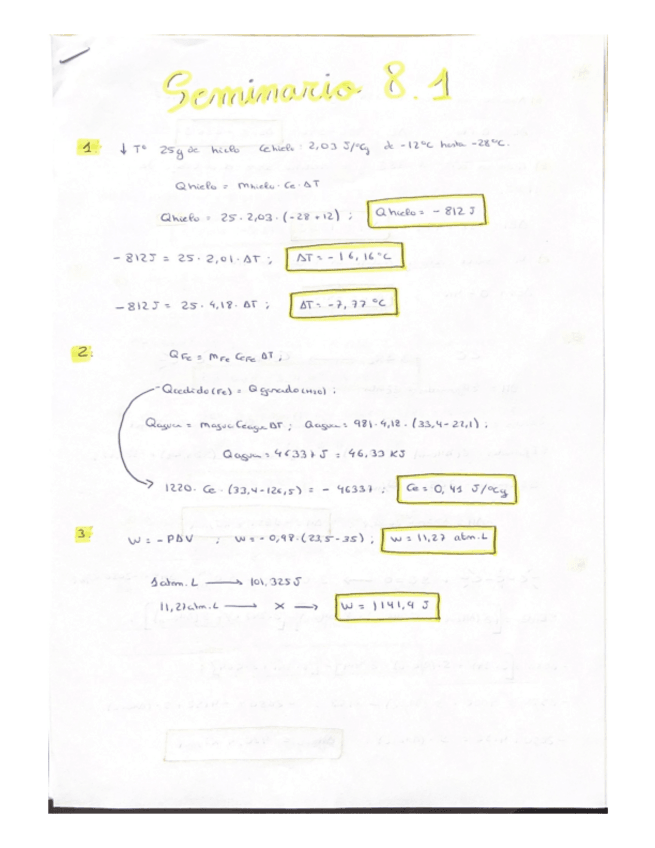 Seminario 8.1
1. ↓ Tº 25g de hielo Ce hielo: 2,03 J/ºCg de -12ºC hasta -28ºC.
Qhielo = mhielo · Ce · ΔT
Qhielo = 25 · 2,03 · (-28 + 12) ; Qhielo = - 812 J
- 812 J = 25 · 2,01 · ΔT ; ΔT = - 16,16 ºC
- 812 J = 25 · 4,18 · ΔT ; ΔT = -7,77 ºC
2. QFe = mFe CeFe ΔT ;
-Qcedido(Fe) = Qganado(H2O) ;
Qagua = magua Ceagua ΔT ; Qagua = 981 · 4,18 · (33,4 - 22,1) ;
Qagua = 46337 J = 46,33 KJ
1220 · Ce · (33,4 - 126,5) = - 46337 ; Ce = 0,41 J/ºCg
3. W = - PΔV ; W = - 0,98 · (23,5 - 35) ; W = 11,27 atm·L
1 atm. L → 101,325 J
11,27 atm. L → X → W = 1141,9 J